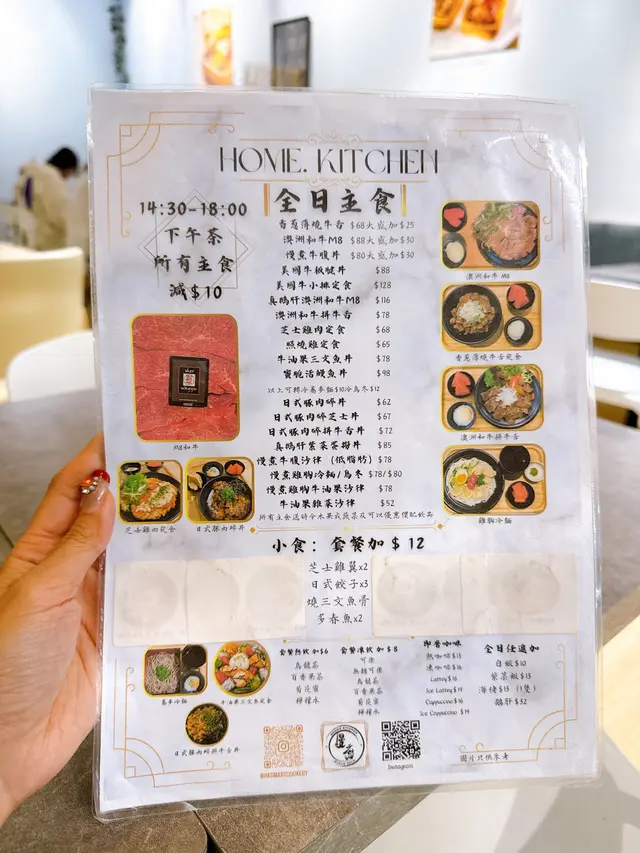 HOME. KITCHEN
全日主食
14:30-18:00
下午茶
所有主食
減$10
香蔥薄燒牛舌 $68大盛加$25
澳洲和牛M8 $88大盛加$30
慢煮牛腹丼 $80大盛加$30
美國牛板腱丼 $88
美國牛小排定食 $128
真鴨肝澳洲和牛M8 $116
澳洲和牛拼牛舌 $78
芝士雞肉定食 $68
照燒雞定食 $65
牛油果三文魚丼 $78
蜜脆活鰻魚丼 $98
以上可轉冷蕎麥麵$10冷烏冬$12
日式豚肉碎丼 $62
日式豚肉碎芝士丼 $67
日式豚肉碎拼牛舌丼 $72
真鴨肝紫菜蛋撈丼 $85
慢煮牛腹沙律 (低脂肪) $78
慢煮雞胸冷麵/烏冬 $78/$80
慢煮雞胸牛油果沙律 $78
牛油果雜菜沙律 $52
所有主食送時令水果或蔬菜及可以優惠價配飲品
澳洲和牛 M8
香蔥薄燒牛舌定食
澳洲和牛拼牛舌
雞胸冷麵
M8和牛
芝士雞肉定食
日式豚肉碎丼
小食: 套餐加 $ 12
芝士雞翼x2
日式餃子x3
燒三文魚骨
多春魚x2
蕎麥冷麵
牛油果三文魚定食
日式豚肉碎拼牛舌丼
套餐熱飲加$6
烏龍茶
百香果茶
菊花蜜
檸檬水
套餐凍飲加 $ 8
可樂
無糖可樂
烏龍茶
百香果茶
菊花蜜
檸檬水
即磨咖啡
熱咖啡 $13
凍咖啡 $16
Lattey $16
Ice Lattey $19
Cappuccino $16
Ice Cappuccino $19
全日任追加
白飯 $10
紫菜飯 $13
海膽 $15 (1隻)
鵝肝 $32
@HATMARTCOOKERY
Instagram
圖片只供參考